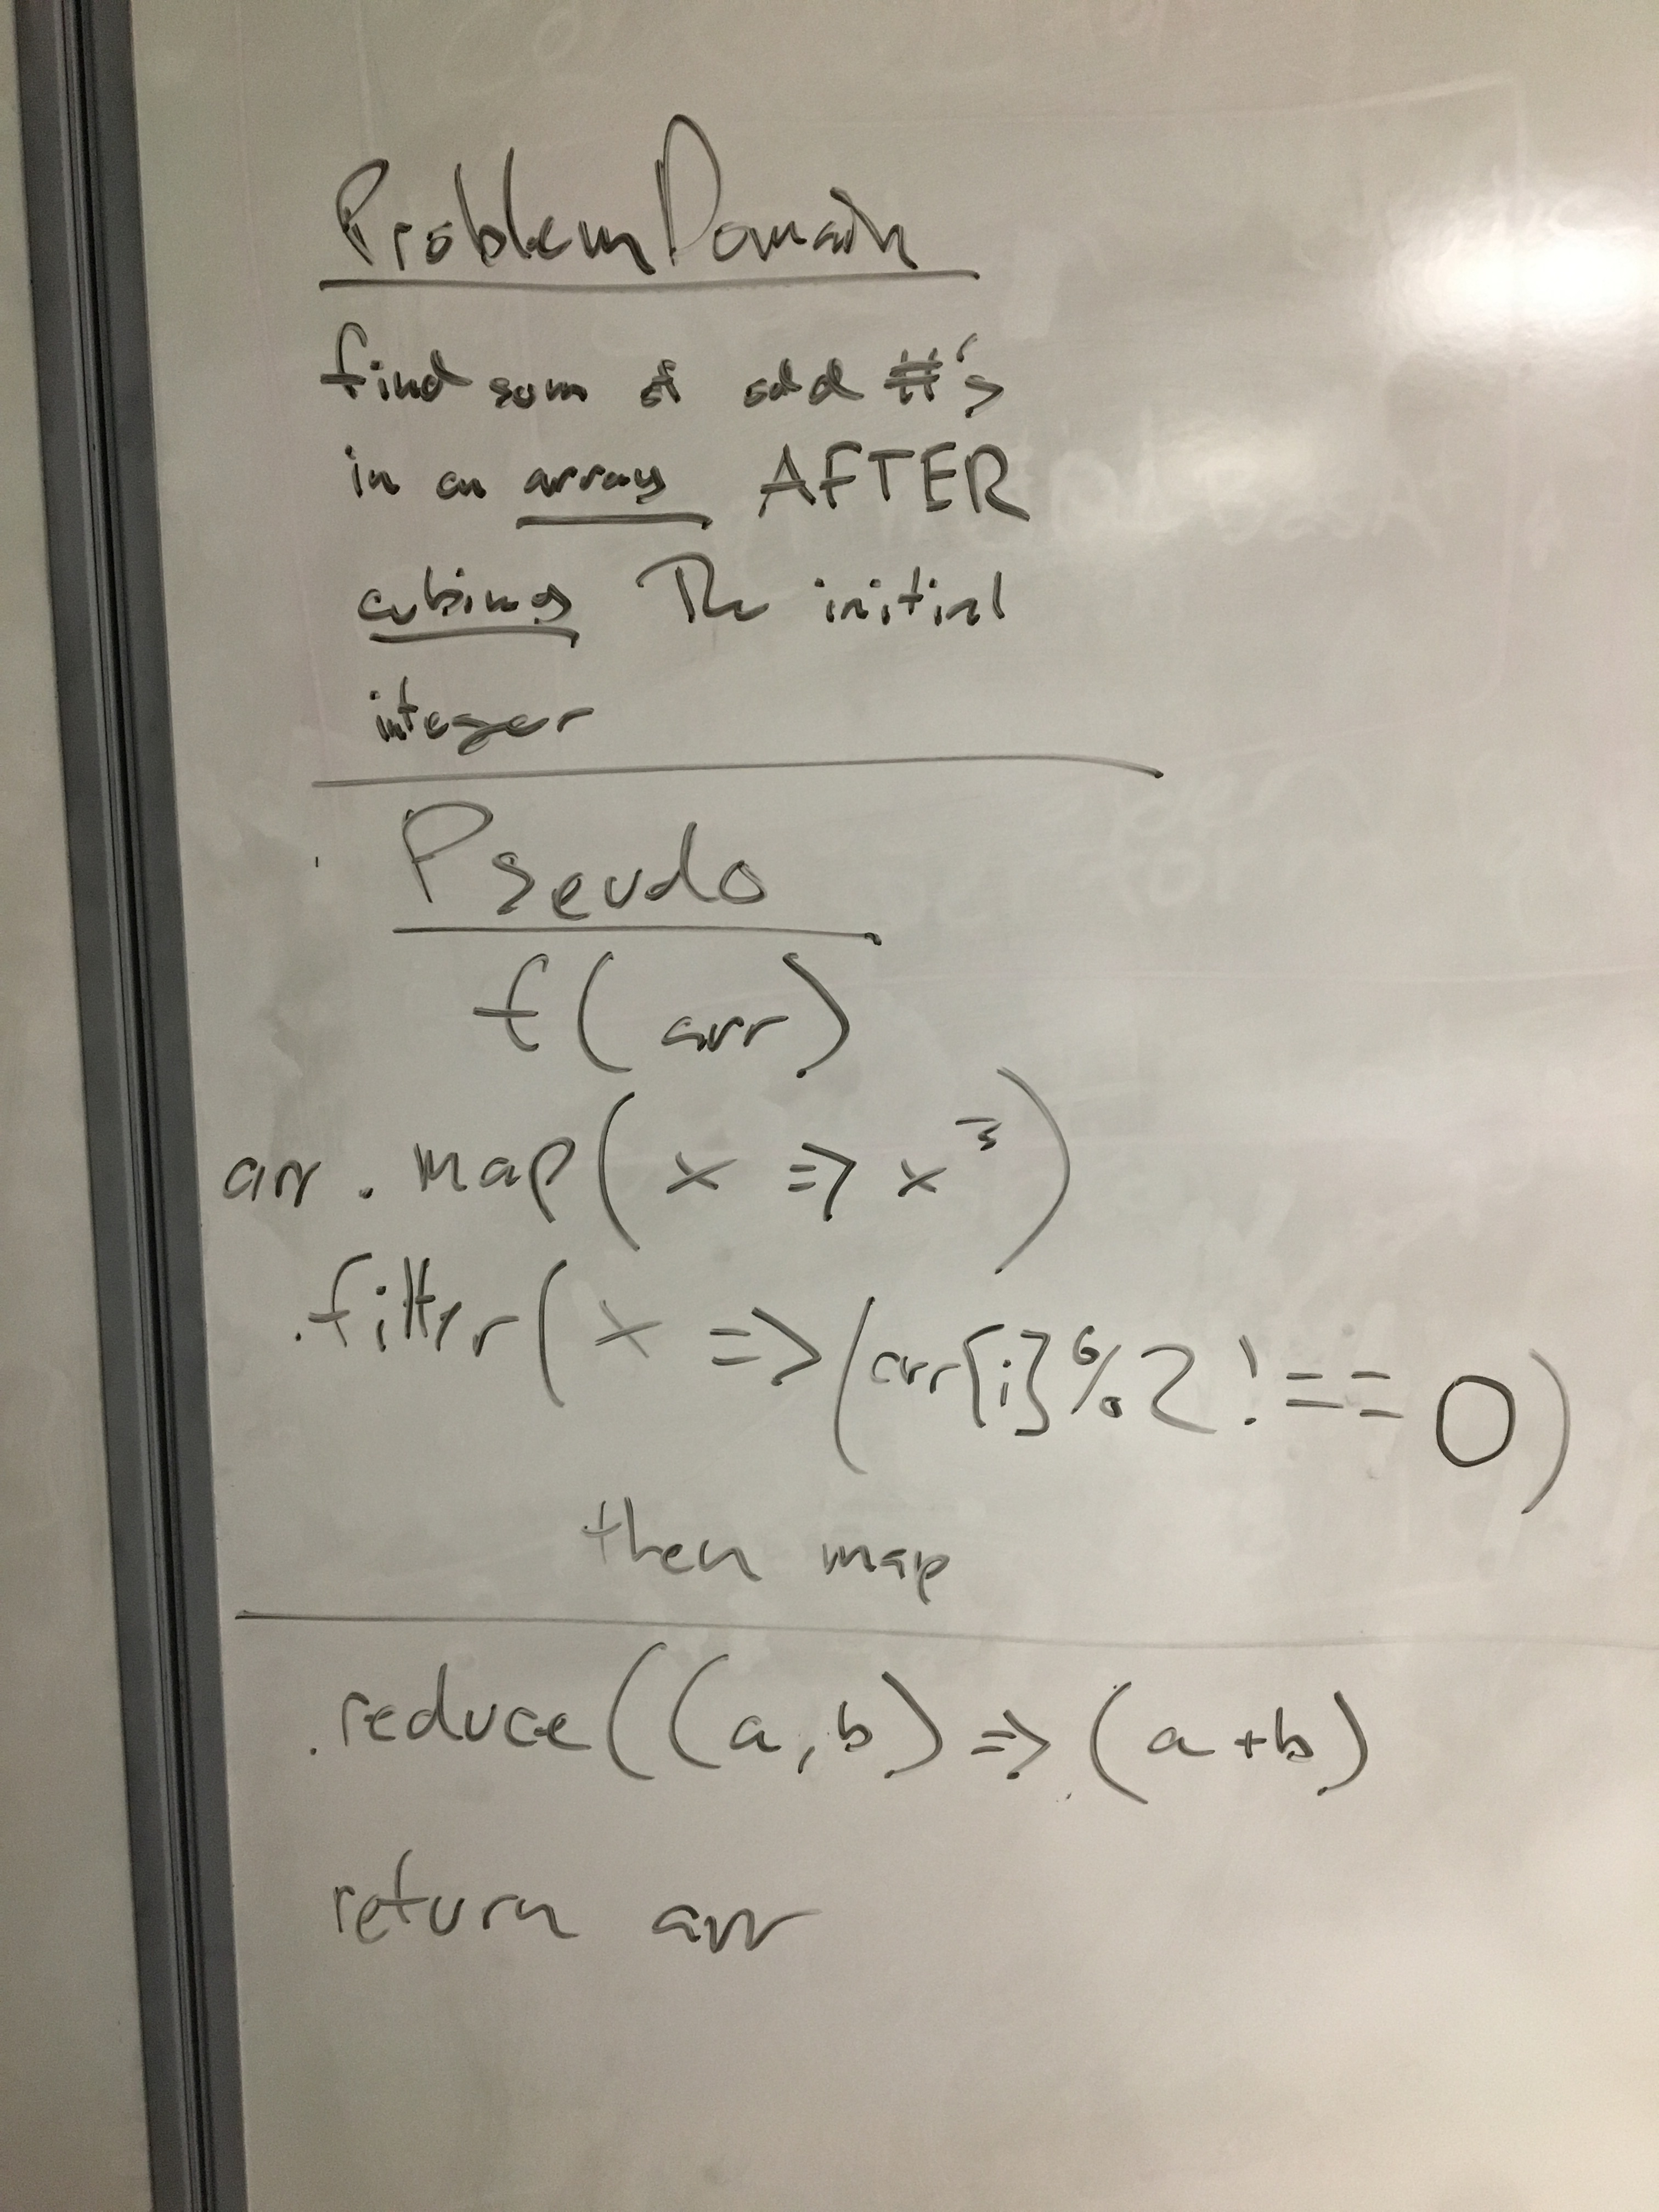 Problem Domain
find sum of odd #'s
in an array AFTER
cubing The initial
integer
Pseudo
f(arr)
arr.map(x => x³)
.filter(x => (arr[i]%2!==0)
then map
.reduce((a,b) => (a+b)
return arr